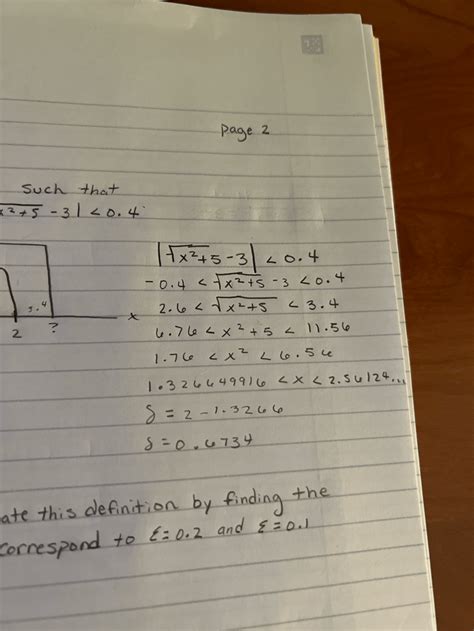 page 2
such that
x²+5 -3| < 0.4
|√x²+5-3| < 0.4
-0.4 < √x²+5 -3 < 0.4
2.6 < √x²+5 < 3.4
6.76 < x²+5 < 11.56
1.76 < x² < 6.56
1.326649916 < x < 2.56124...
δ = 2-1.3266
δ = 0.6734
3.4
x
2 ?
ate this definition by finding the
correspond to ε=0.2 and ε=0.1